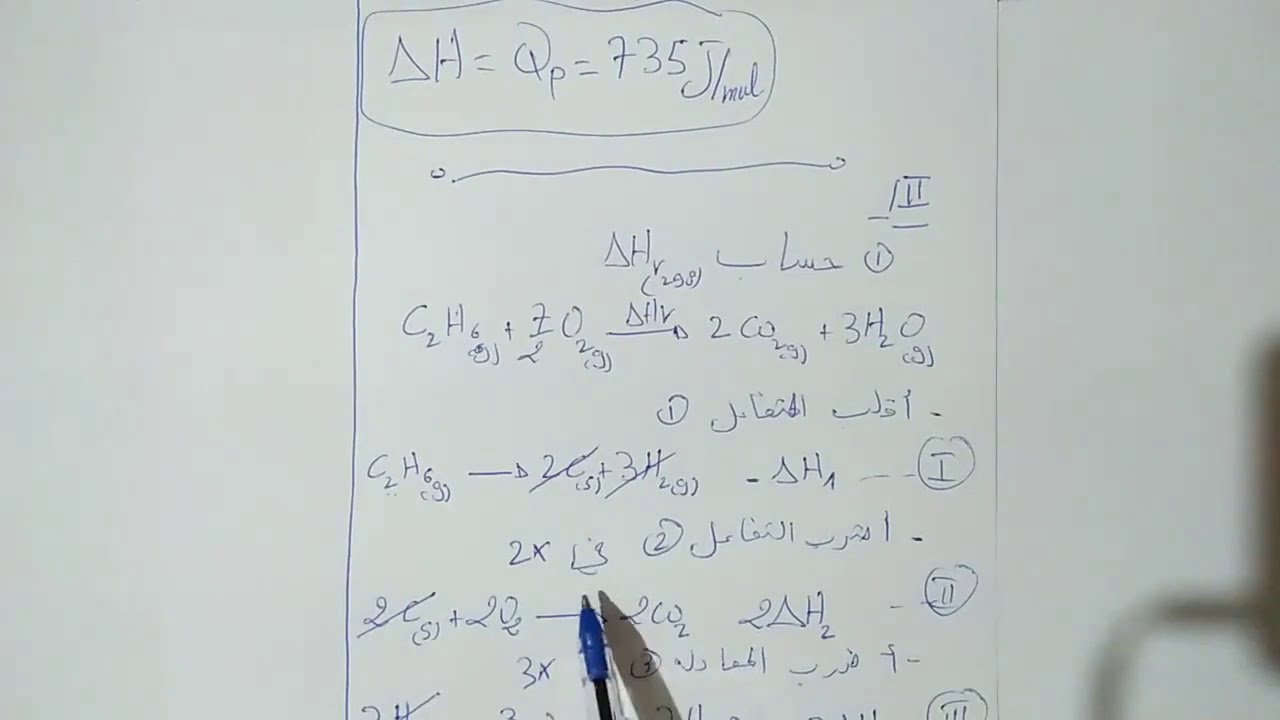 ΔH = Qp = 735 J/mol
II/-
① حساب ΔHr(298)
C2H6(g) + 7/2 O2(g) —ΔHr→ 2CO2(g) + 3H2O(g)
- أقلب المتفاعل ①
C2H6(g) → 2C(s) + 3H2(g) - ΔH1 --- Ⓘ
- اضرب التفاعل ② في 2x
2C(s) + 2O2 → 2CO2 2ΔH2 -- II
- أضرب المعادلة ③ 3x
III